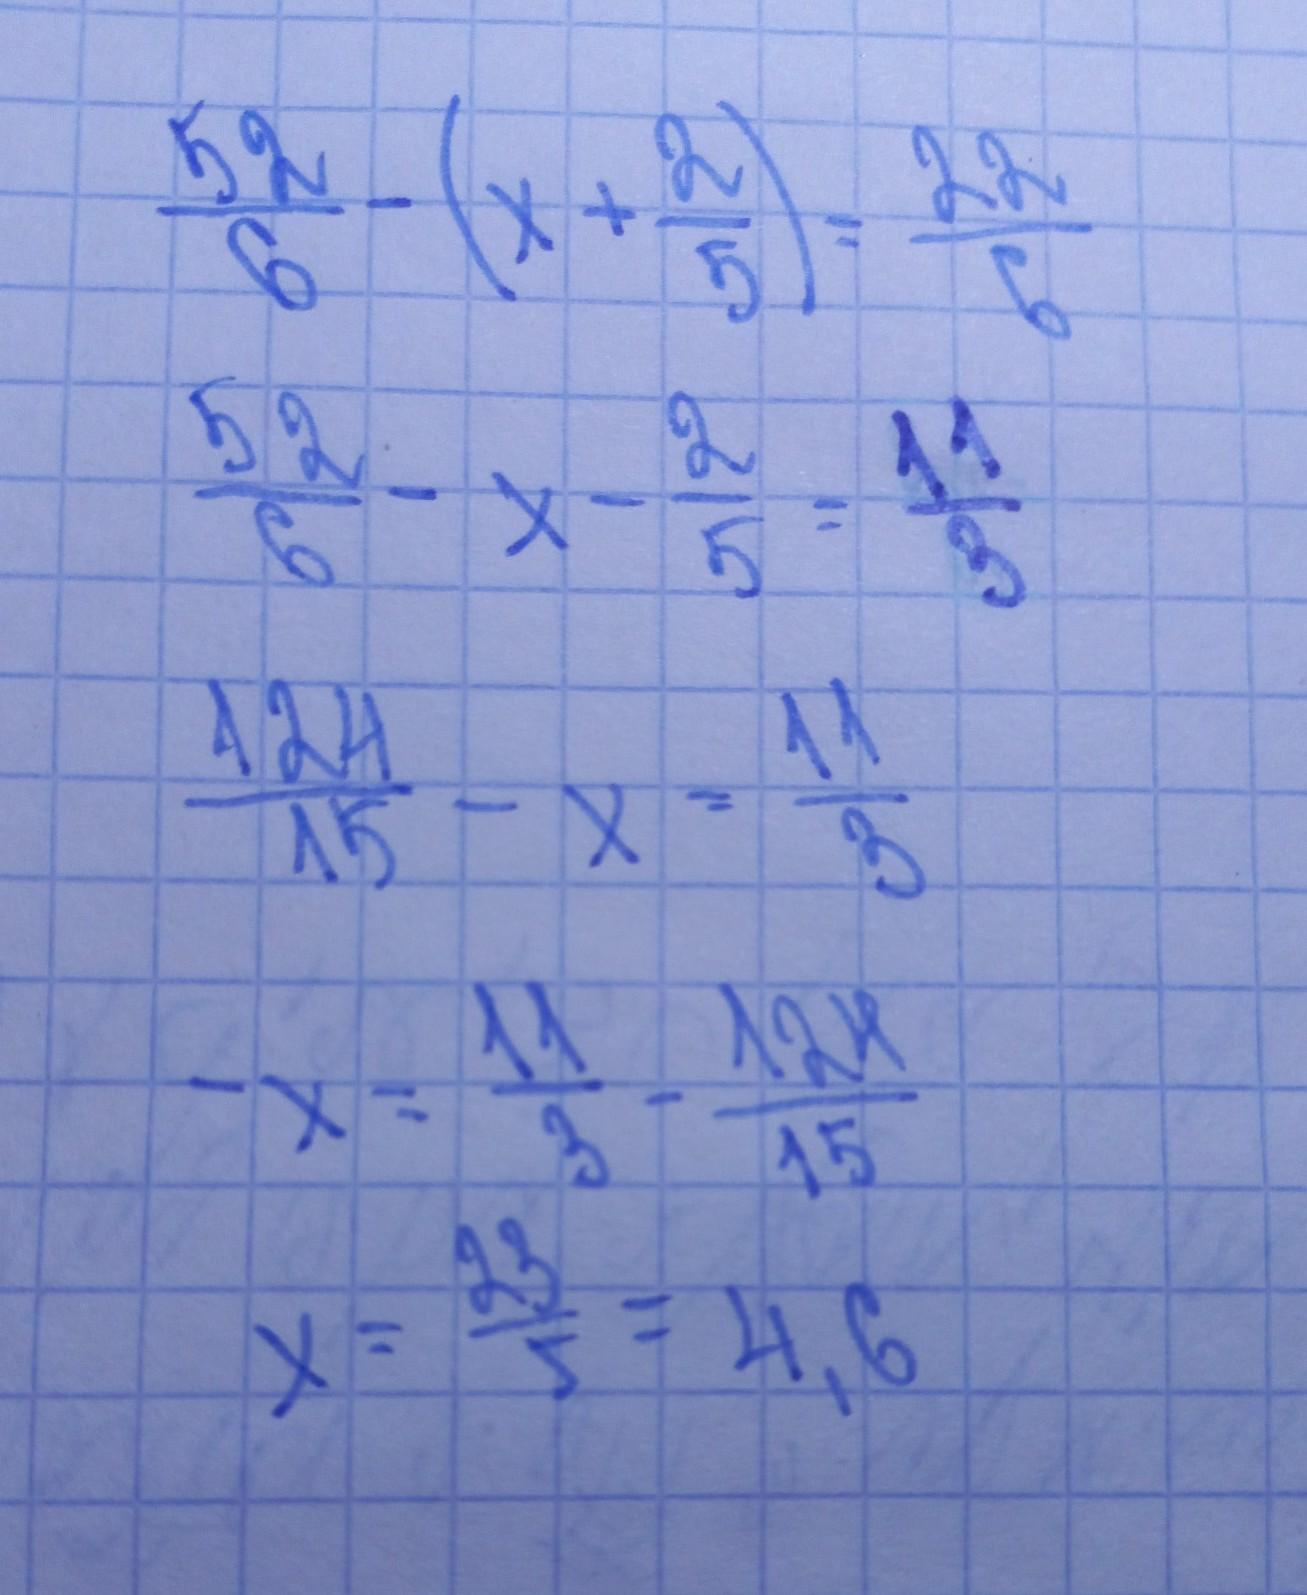 52/6 - (x + 2/5) = 22/6
52/6 - x - 2/5 = 11/3
124/15 - x = 11/3
-x = 11/3 - 124/15
x = 23/5 = 4,6